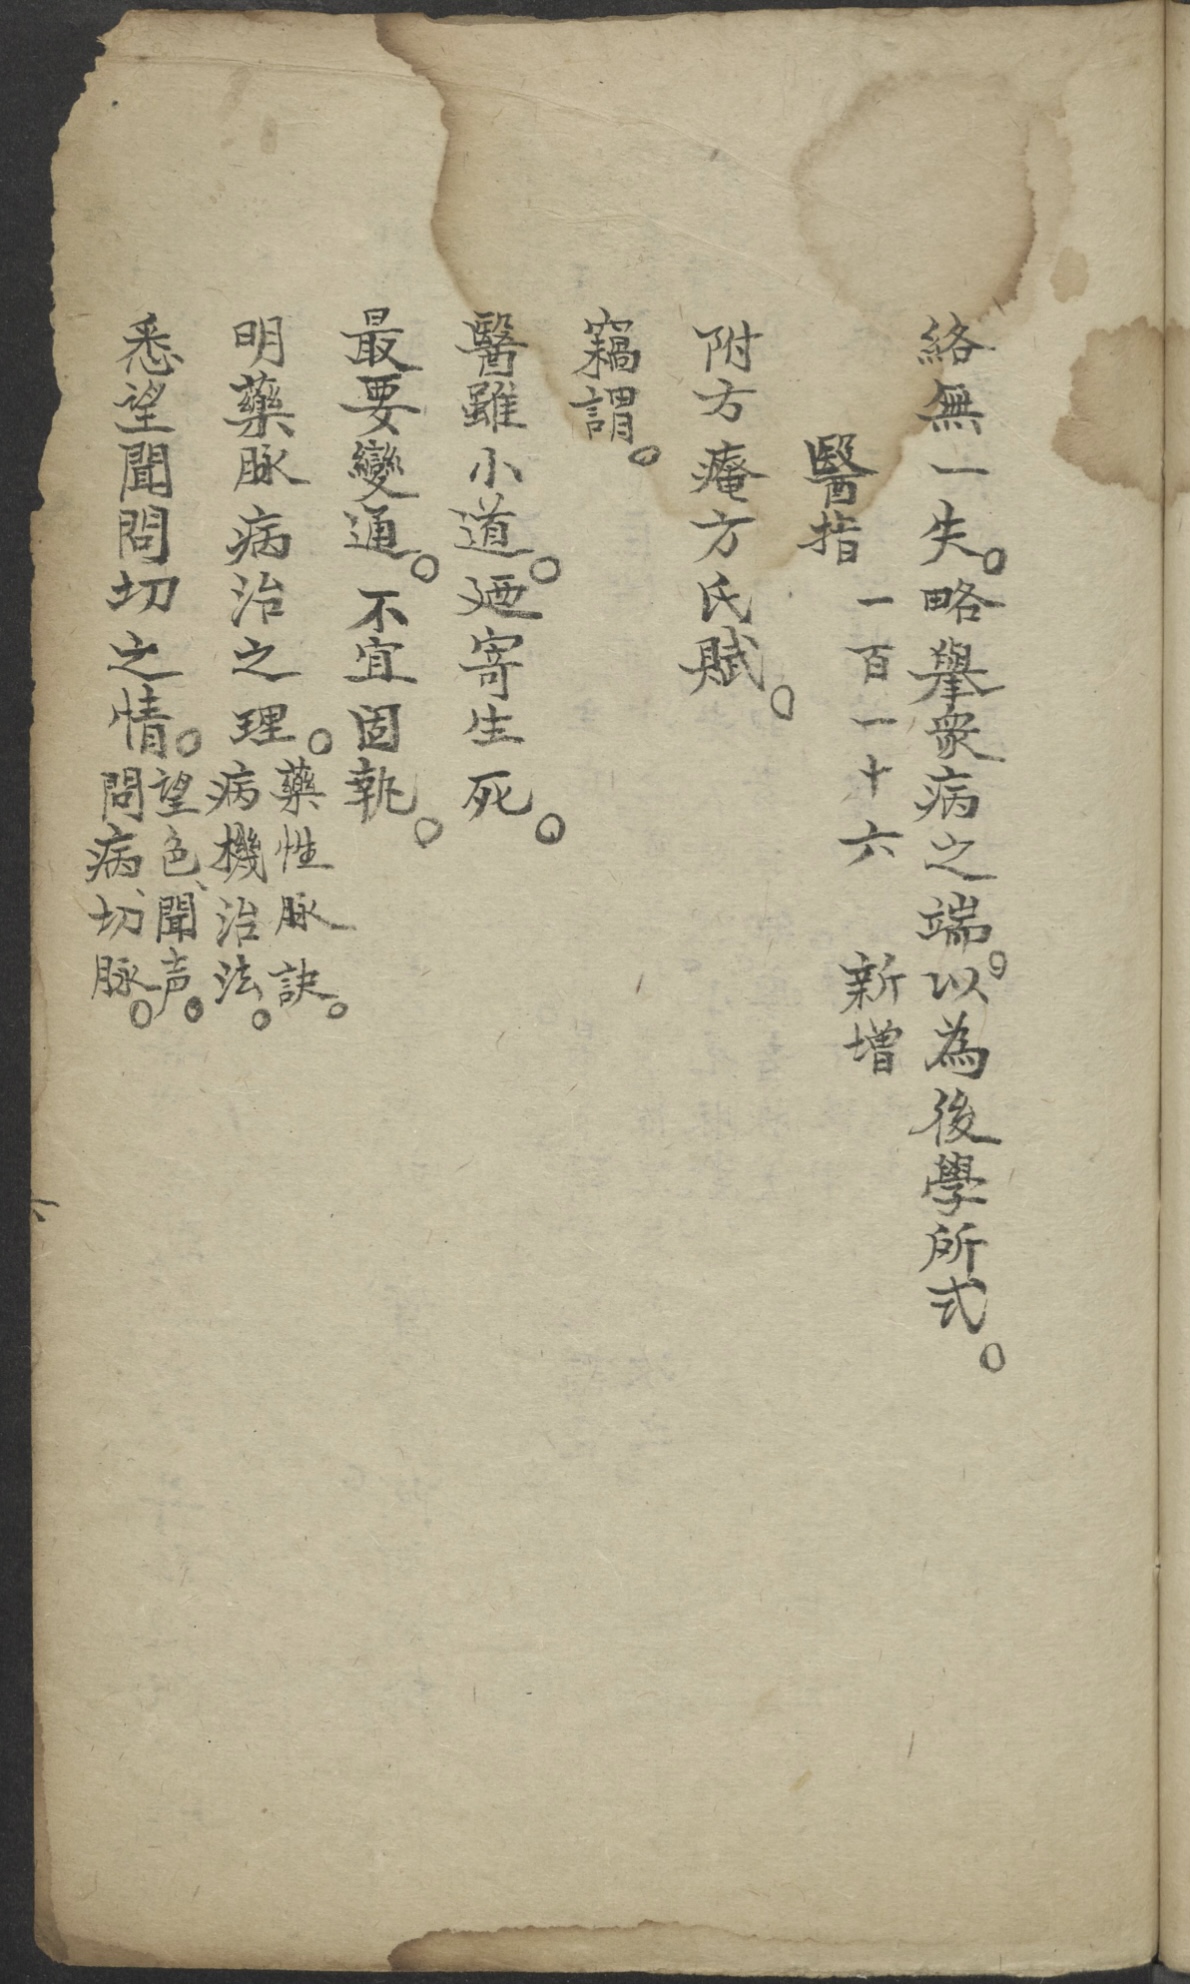 絡無一失。略舉衆病之端。以為後學所式。
醫指 一百一十六 新增
附方痷方氏賦。
竊謂。
醫雖小道。廼寄生死。
最要變通。不宜固執。
明藥脉病治之理。藥性脉訣。病機治法。
悉望聞問切之情。望色、聞声。問病、切脉。